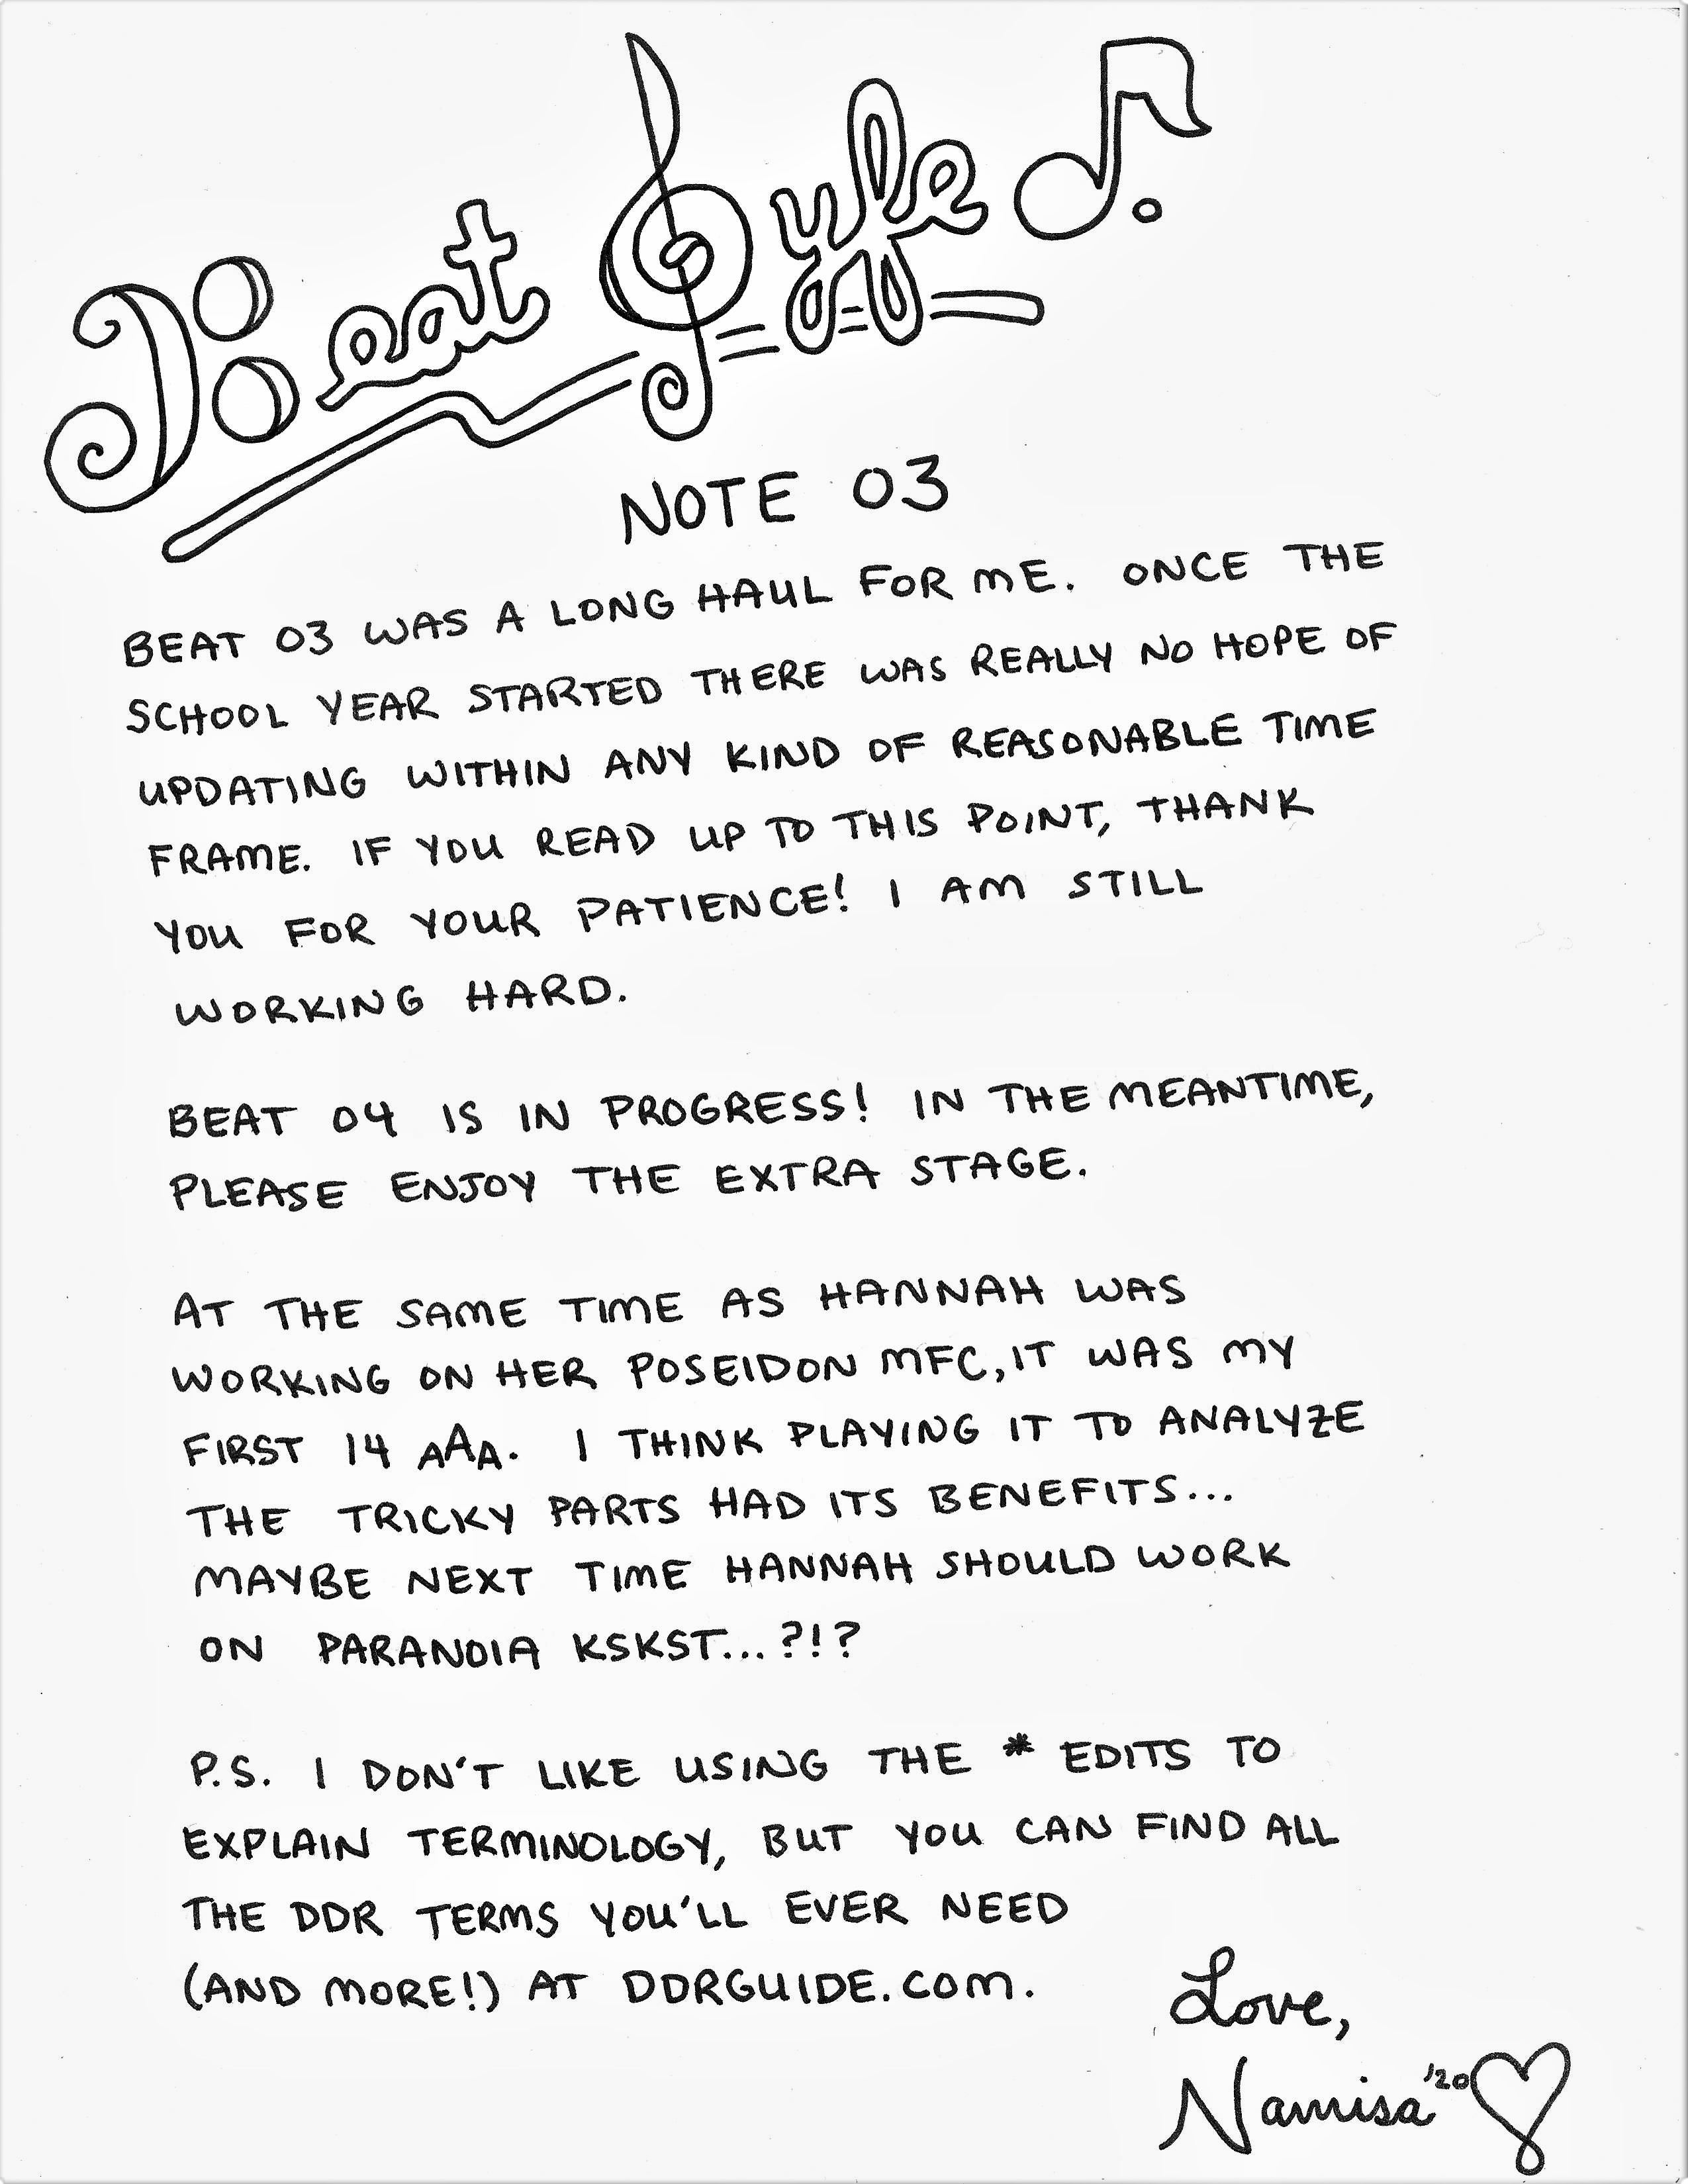 Beat Gyfe
NOTE 03
BEAT 03 WAS A LONG HAUL FOR ME. ONCE THE
SCHOOL YEAR STARTED THERE WAS REALLY NO HOPE OF
UPDATING WITHIN ANY KIND OF REASONABLE TIME
FRAME. IF YOU READ UP TO THIS POINT, THANK
YOU FOR YOUR PATIENCE! I AM STILL
WORKING HARD.
BEAT 04 IS IN PROGRESS! IN THE MEANTIME,
PLEASE ENJOY THE EXTRA STAGE.
AT THE SAME TIME AS HANNAH WAS
WORKING ON HER POSEIDON MFC, IT WAS MY
FIRST 14 AAA. I THINK PLAYING IT TO ANALYZE
THE TRICKY PARTS HAD ITS BENEFITS...
MAYBE NEXT TIME HANNAH SHOULD WORK
ON PARANOIA KSKST...?!?
P.S. I DON'T LIKE USING THE * EDITS TO
EXPLAIN TERMINOLOGY, BUT YOU CAN FIND ALL
THE DDR TERMS YOU'LL EVER NEED
(AND MORE!) AT DDRGUIDE.COM.
Love,
Namisa '20